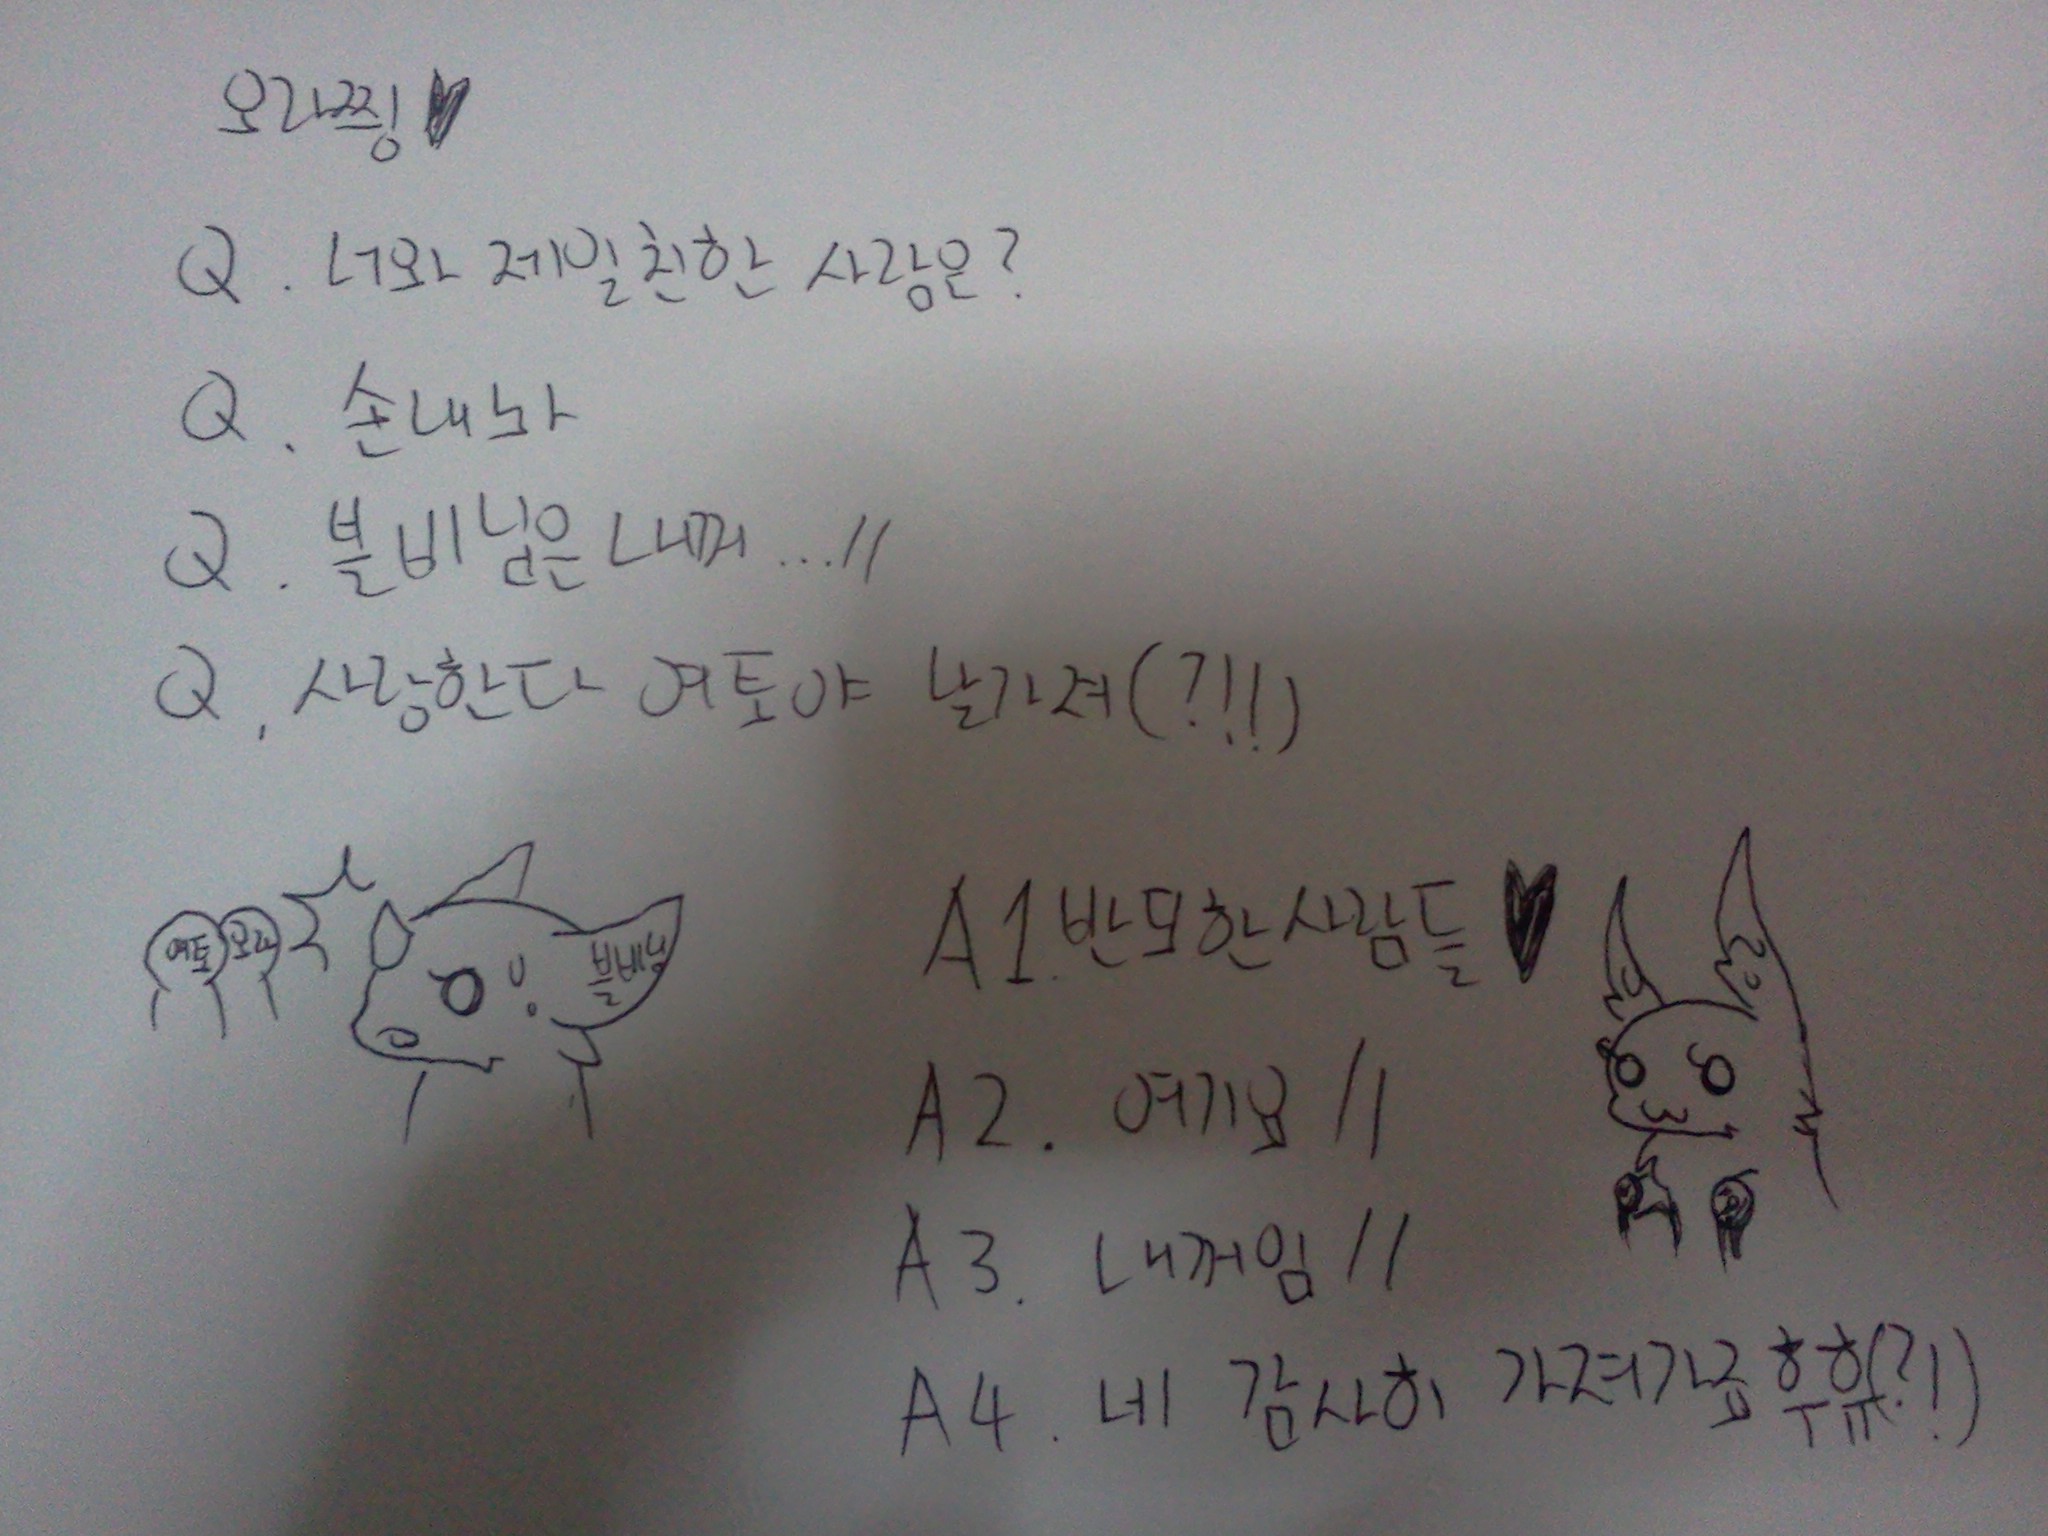 오라찡♥
Q. 너와 제일친한 사람은?
Q. 손내놔
Q. 블비님은 내꺼...//
Q. 사랑한다 여토야 날가져(?!!)
여토 오라
블비님
A1. 반모한사람들♥
A2. 여기요//
A3. 내꺼임//
A4. 네 감사히 가져가죠 후휴(?!)